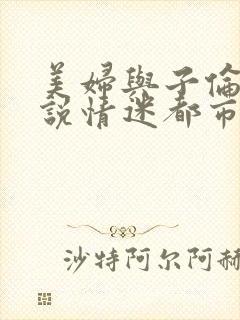 美婦與子倫
說情迷都市
沙特阿尔阿赫